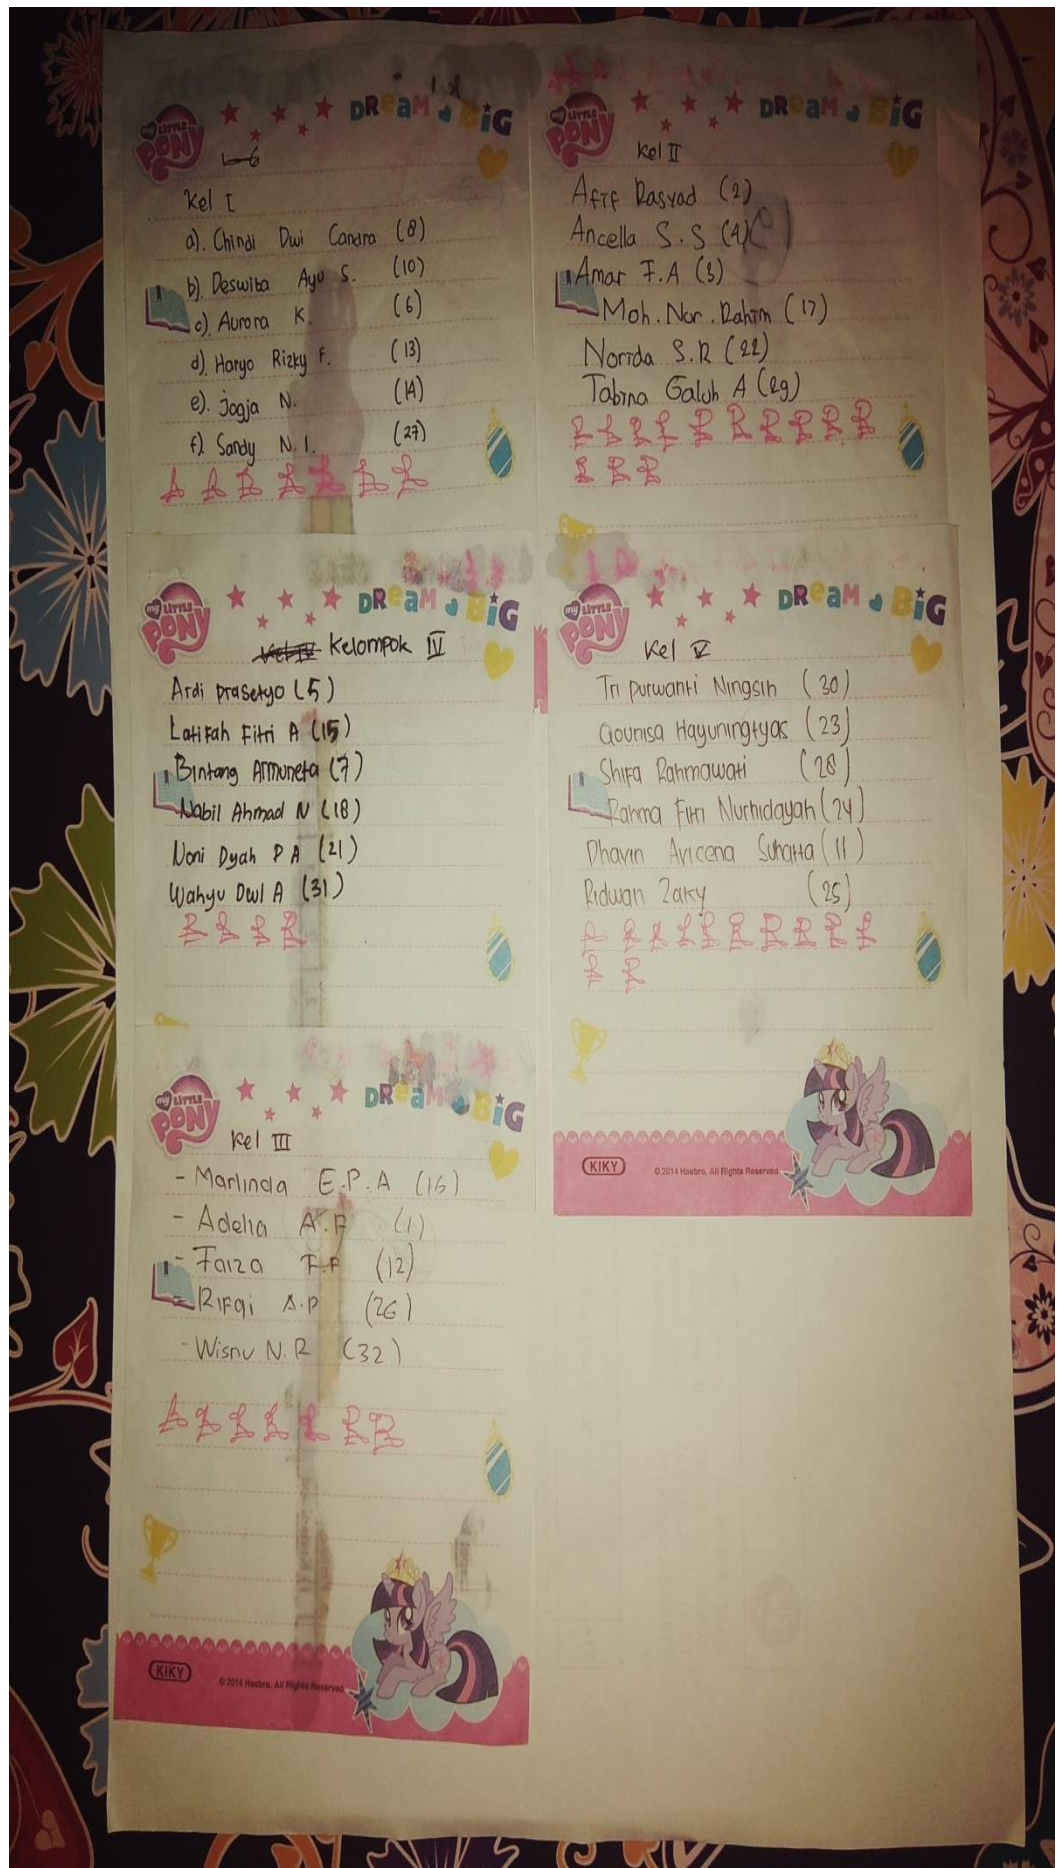 my LITTLE PONY
DREAM BIG
1-6
Kel I
a). Chindi Dwi Candra (8)
b). Deswita Ayu S. (10)
c). Aurora K. (6)
d). Haryo Rizky F. (13)
e). Jogja N. (14)
f). Sandy N. I. (27)
my LITTLE PONY
DREAM BIG
Kel II
Afif Rasyad (2)
Ancella S.S (4)
Amar F.A (3)
Moh. Nur. Rahim (17)
Norida S.R (22)
Tabina Galuh A (29)
my LITTLE PONY
DREAM BIG
Kel IV Kelompok IV
Ardi Prasetyo (5)
Latifah Fitri A (15)
Bintang Armuneta (7)
Nabil Ahmad N (18)
Noni Dyah P A (21)
Wahyu Dwi A (31)
my LITTLE PONY
DREAM BIG
Kel V
Tri Purwanti Ningsih (30)
Qounisa Hayuningtyas (23)
Shifa Rahmawati (28)
Rahma Fitri Nurhidayah (24)
Dhavin Avicena Suharta (11)
Ridwan Zaky (25)
KIKY
© 2014 Hasbro. All Rights Reserved.
my LITTLE PONY
DREAM BIG
Kel III
- Marlinda E.P.A (16)
- Adelia A.F (1)
- Faiza F.F (12)
- Rifqi A.P (26)
- Wisnu N.R (32)
KIKY
© 2014 Hasbro. All Rights Reserved.